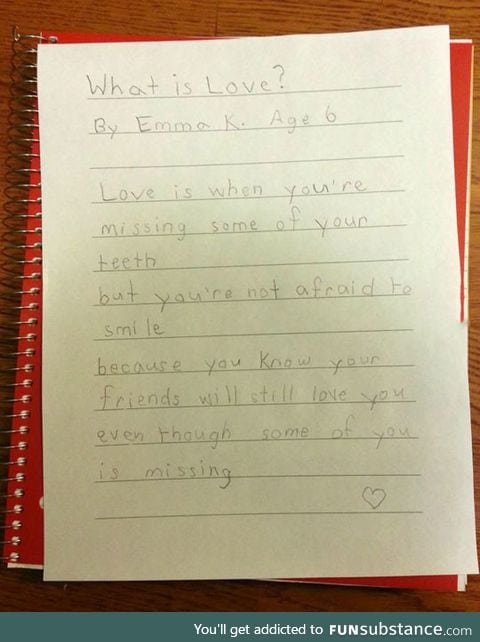 What is Love?
By Emma K. Age 6
Love is when you're
missing some of your
teeth
but you're not afraid to
smile
because you know your
friends will still love you
even though some of you
is missing
You'll get addicted to FUNsubstance.com